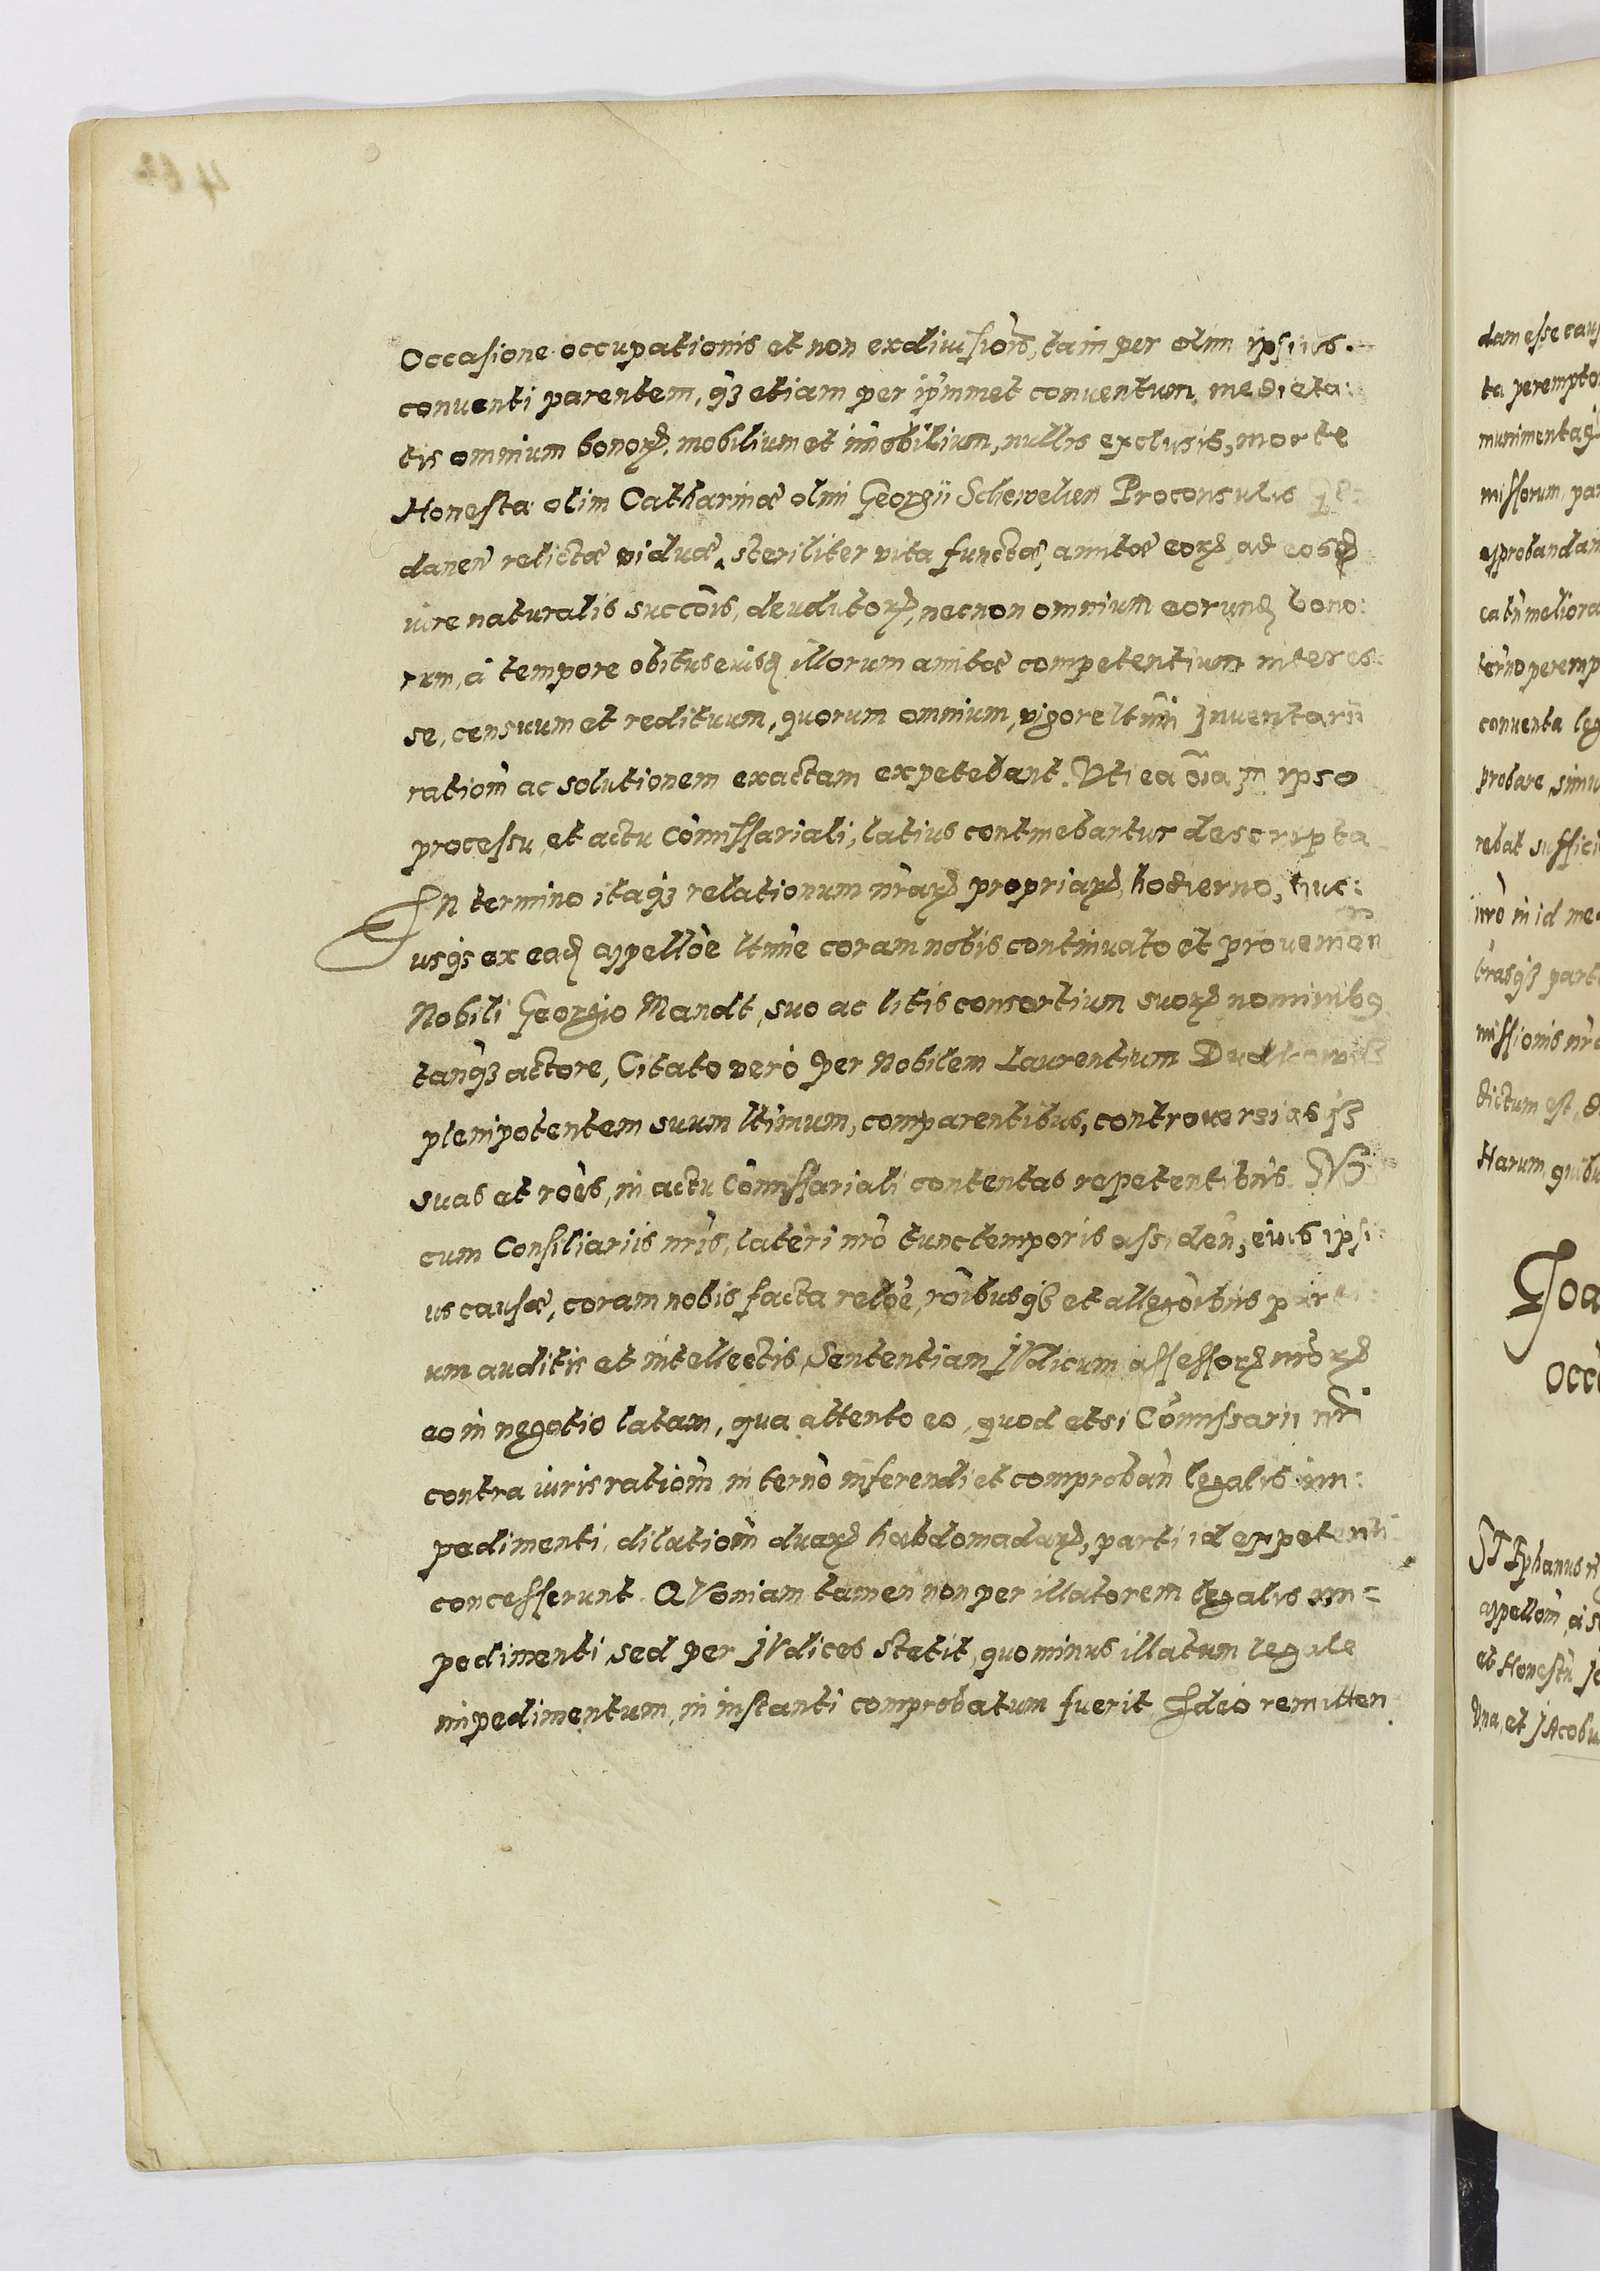 Occasione occupationis et non exdiuisiois, tam per olim ipsius
conuenti parentem, q3 etiam per ipmmet conuentum, medieta:
tis omnium bonoꝝ, mobilium et imobilium, nullis exclusis, morte
Honesta olim Catharinæ olim Georgii Schewelien Proconsulis
danen relictæ viduæ, steriliter vita functæ, amitæ eoꝝ, ad eosd
iure naturalis succois, deuolutoꝝ, necnon omnium eorund bono:
rum, à tempore obitus eiusd illorum amitæ competentium interes:
se, censuum et redituum, quorum omnium, vigore ltimi Inuentarii
rationem ac solutionem exactam expetebant. Vti ea oia in ipso
processu et actu Comissariali, latius continebantur descripta
In termino itaq3 relationum nraꝝ propriaꝝ hodierno, huc:
usq3 ex ead appelloe ltime coram nobis continuato et prouenien
Nobili Georgio Mandt, suo ac litis consortium suoꝝ nominibꝰ
tanq3 actore, Citato verò per Nobilem Laurentium
plenipotentem suum ltimum, comparentibus, controuersias
suas et roes, in actu Comissariali contentas repetentibus. NO3
cum Consiliariis nris, lateri nro tunc temporis assiden, eius ipsi:
us causæ, coram nobis facta reloe, roibusq3 et allegoibus par
um auditis et intellectis, Sententiam IVdicum assessoꝝ nroꝝ
eo in negotio latam, qua attento eo, quod etsi Comissarii nri
contra iuris rationem in terno inferendi et comproban legalis im:
pedimenti, dilationem duaꝝ habdomadaꝝ, parti id expetenti
concesserunt. QVoniam tamen non per illatorem legalis im=
pedimenti, sed per IVdices stetit, quominus illatum legale
impedimentum, in instanti comprobatum fuerit Ideo remitten
dam esse caus
ta perempto
munimentaq3
missorum, par
approbandam
ea tn meliora
terno peremp
conuenta leg
probare, simu
rebat suffici
nro in id me
trasq3 part
missionis nra
dictum est, d
Harum quibu
Joa
Occ
STEphanus
appellom, à s
et Honestu Jo
Vna, et JAcobu